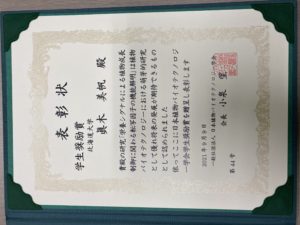 表彰状
学生奨励賞
北海道大学
眞木 美帆 殿
貴殿の研究「栄養シグナルによる植物成長
制御に関わる転写因子の機能解明」は植物
バイオテクノロジーにおける萌芽的研究
として優れ将来の発展が期待できるもの
として認められました
依ってここに日本植物バイオテクノロジ
ー学会学生奨励賞を贈呈し表彰します
2021年9月9日
一般社団法人 日本植物バイオテクノロジー学会
会長 小泉 望
第44号